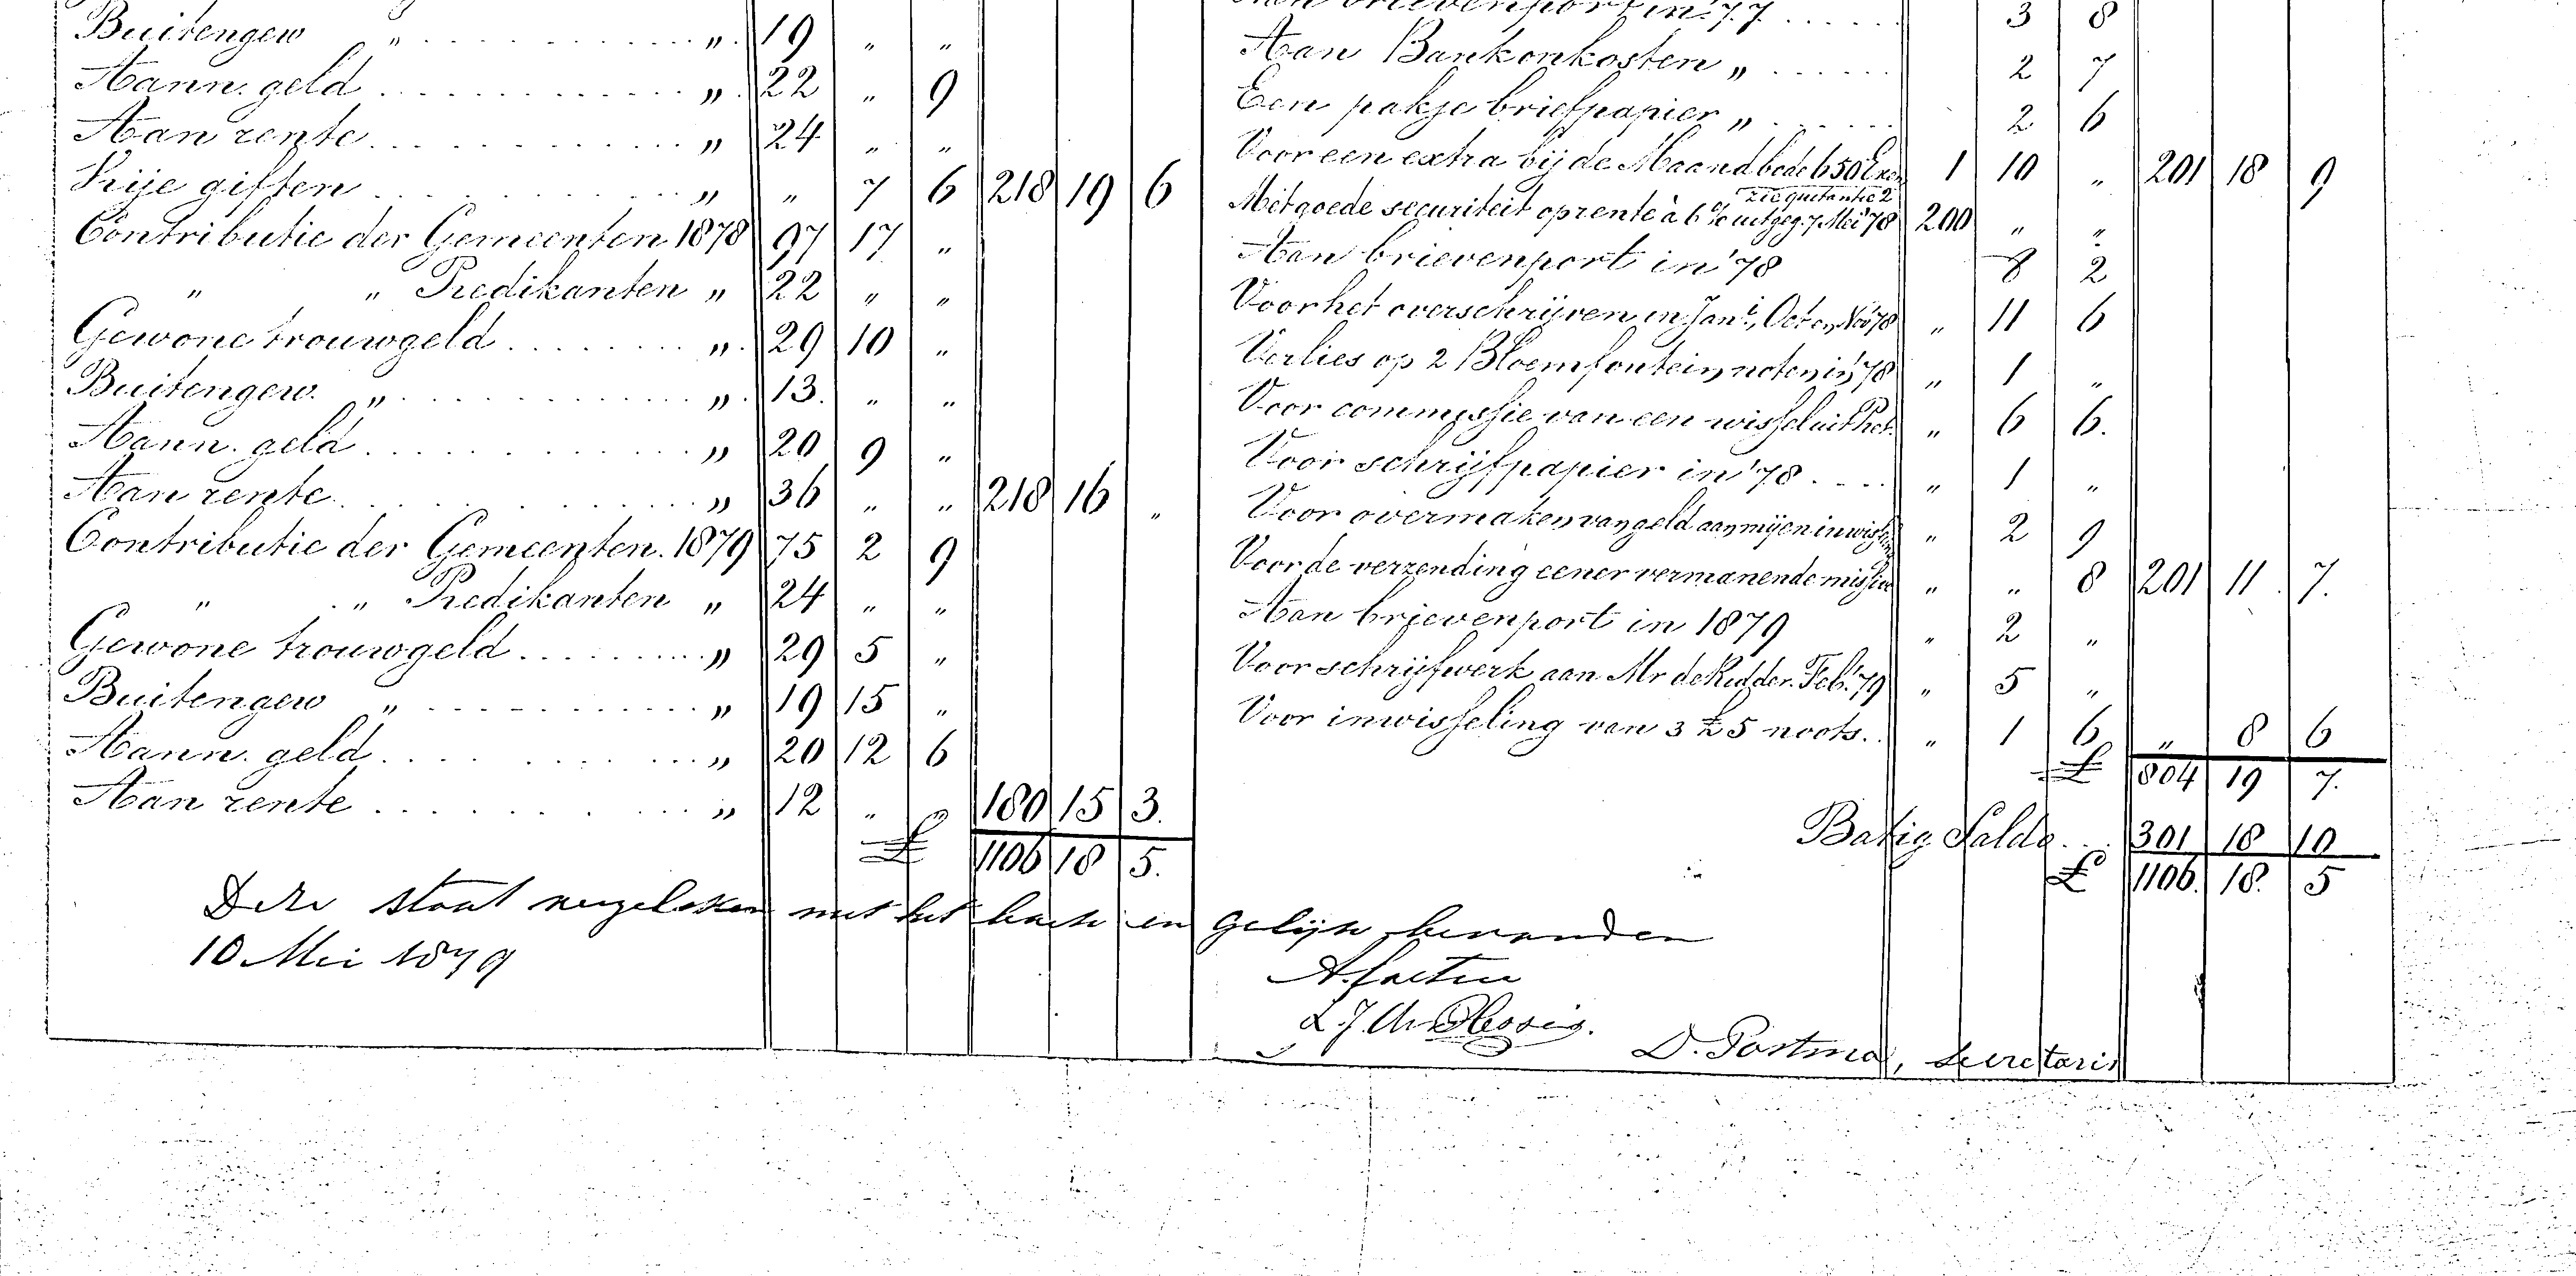 Buitengew „ . . . . . . . . . . „ 19 „ „
Aann. geld . . . . . . . . . . „ 22 „ 9
Aan rente . . . . . . . . . . „ 24 „ „
Vrije giften . . . . . . . . . . „ „ 7 6 218 19 6
Contributie der Gemeenten 1878 97 17 „
„ „ Predikanten „ 22 „ „
Gewone trouwgeld . . . . . . „ 29 10 „
Buitengew. „ . . . . . . . . . . „ 13. „ „
Aann. geld . . . . . . . . . . „ 20 9 „
Aan rente . . . . . . . . . . „ 36 „ „ 218 16 „
Contributie der Gemeenten. 1879 75 2 9
„ „ Predikanten „ 24 „ „
Gewone trouwgeld . . . . . . „ 29 5 „
Buitengew „ . . . . . . . . . . „ 19 15 „
Aann. geld . . . . . . . . . . „ 20 12 6
Aan rente . . . . . . . . . . „ 12 „ „ 180 15 3.
£ 1106 18 5.
Aan brievenport in '77 . . . . . 3 8
Aan Bankonkosten „ . . . . . . 2 7
Een pakje briefpapier „ . . . . . . 2 6
Voor een extra bij de Maandbode 650 Exx 1 10 „ 201 18 9
zie quitantie 2
Met goede securiteit op rente à 6 % uitgeg. 7 Mei '78 200 „ „
Aan brievenport in '78 8 2
Voor het overschrijven in Jan., Oct en Nov '78 „ 11 6
Verlies op 2 Bloemfontein noten in '78 „ 1 „
Voor commissie van een wissel uit „ 6 6.
Voor schrijfpapier in '78 . . . . „ 1 „
Voor overmaken van geld aan mij en inwissel „ 2 9
Voor de verzending eener vermanende missive „ „ 8 201 11 7.
Aan brievenport in 1879 „ 2 „
Voor schrijfwerk aan Mr de Ridder. Feb. '79 „ 5 „
Voor inwisseling van 3 £5 noots. . „ 1 6 „ 8 6
£ 804 19 7.
Batig Saldo. . . 301 18 10
£ 1106. 18. 5
Deze staat vergeleken met het boek en gelijk bevonden
10 Mei 1879
L. J. du Plessis.
D. Postma, Secretaris